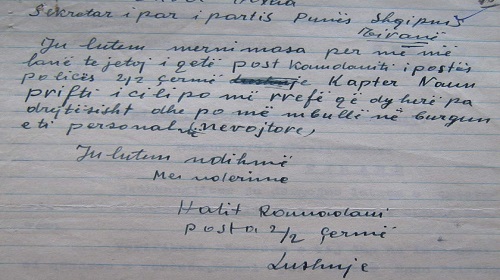 Sekretar i par i partis Punës Shqipris
Tiranë
Ju lutem merni masa per më më
lanë te jetoj i qeti post komdaniti i postës
policës 2/2 çermë Kapter Naun
prifti i cili po më rrefë që dy herë pa
drejtësisht dhe po më mbulli në burgun
e ti personal në nevojtore,
Ju lutem ndihmë
Me nderime
Halit Ramadani
Posta 2/2 çermë
Lushnje